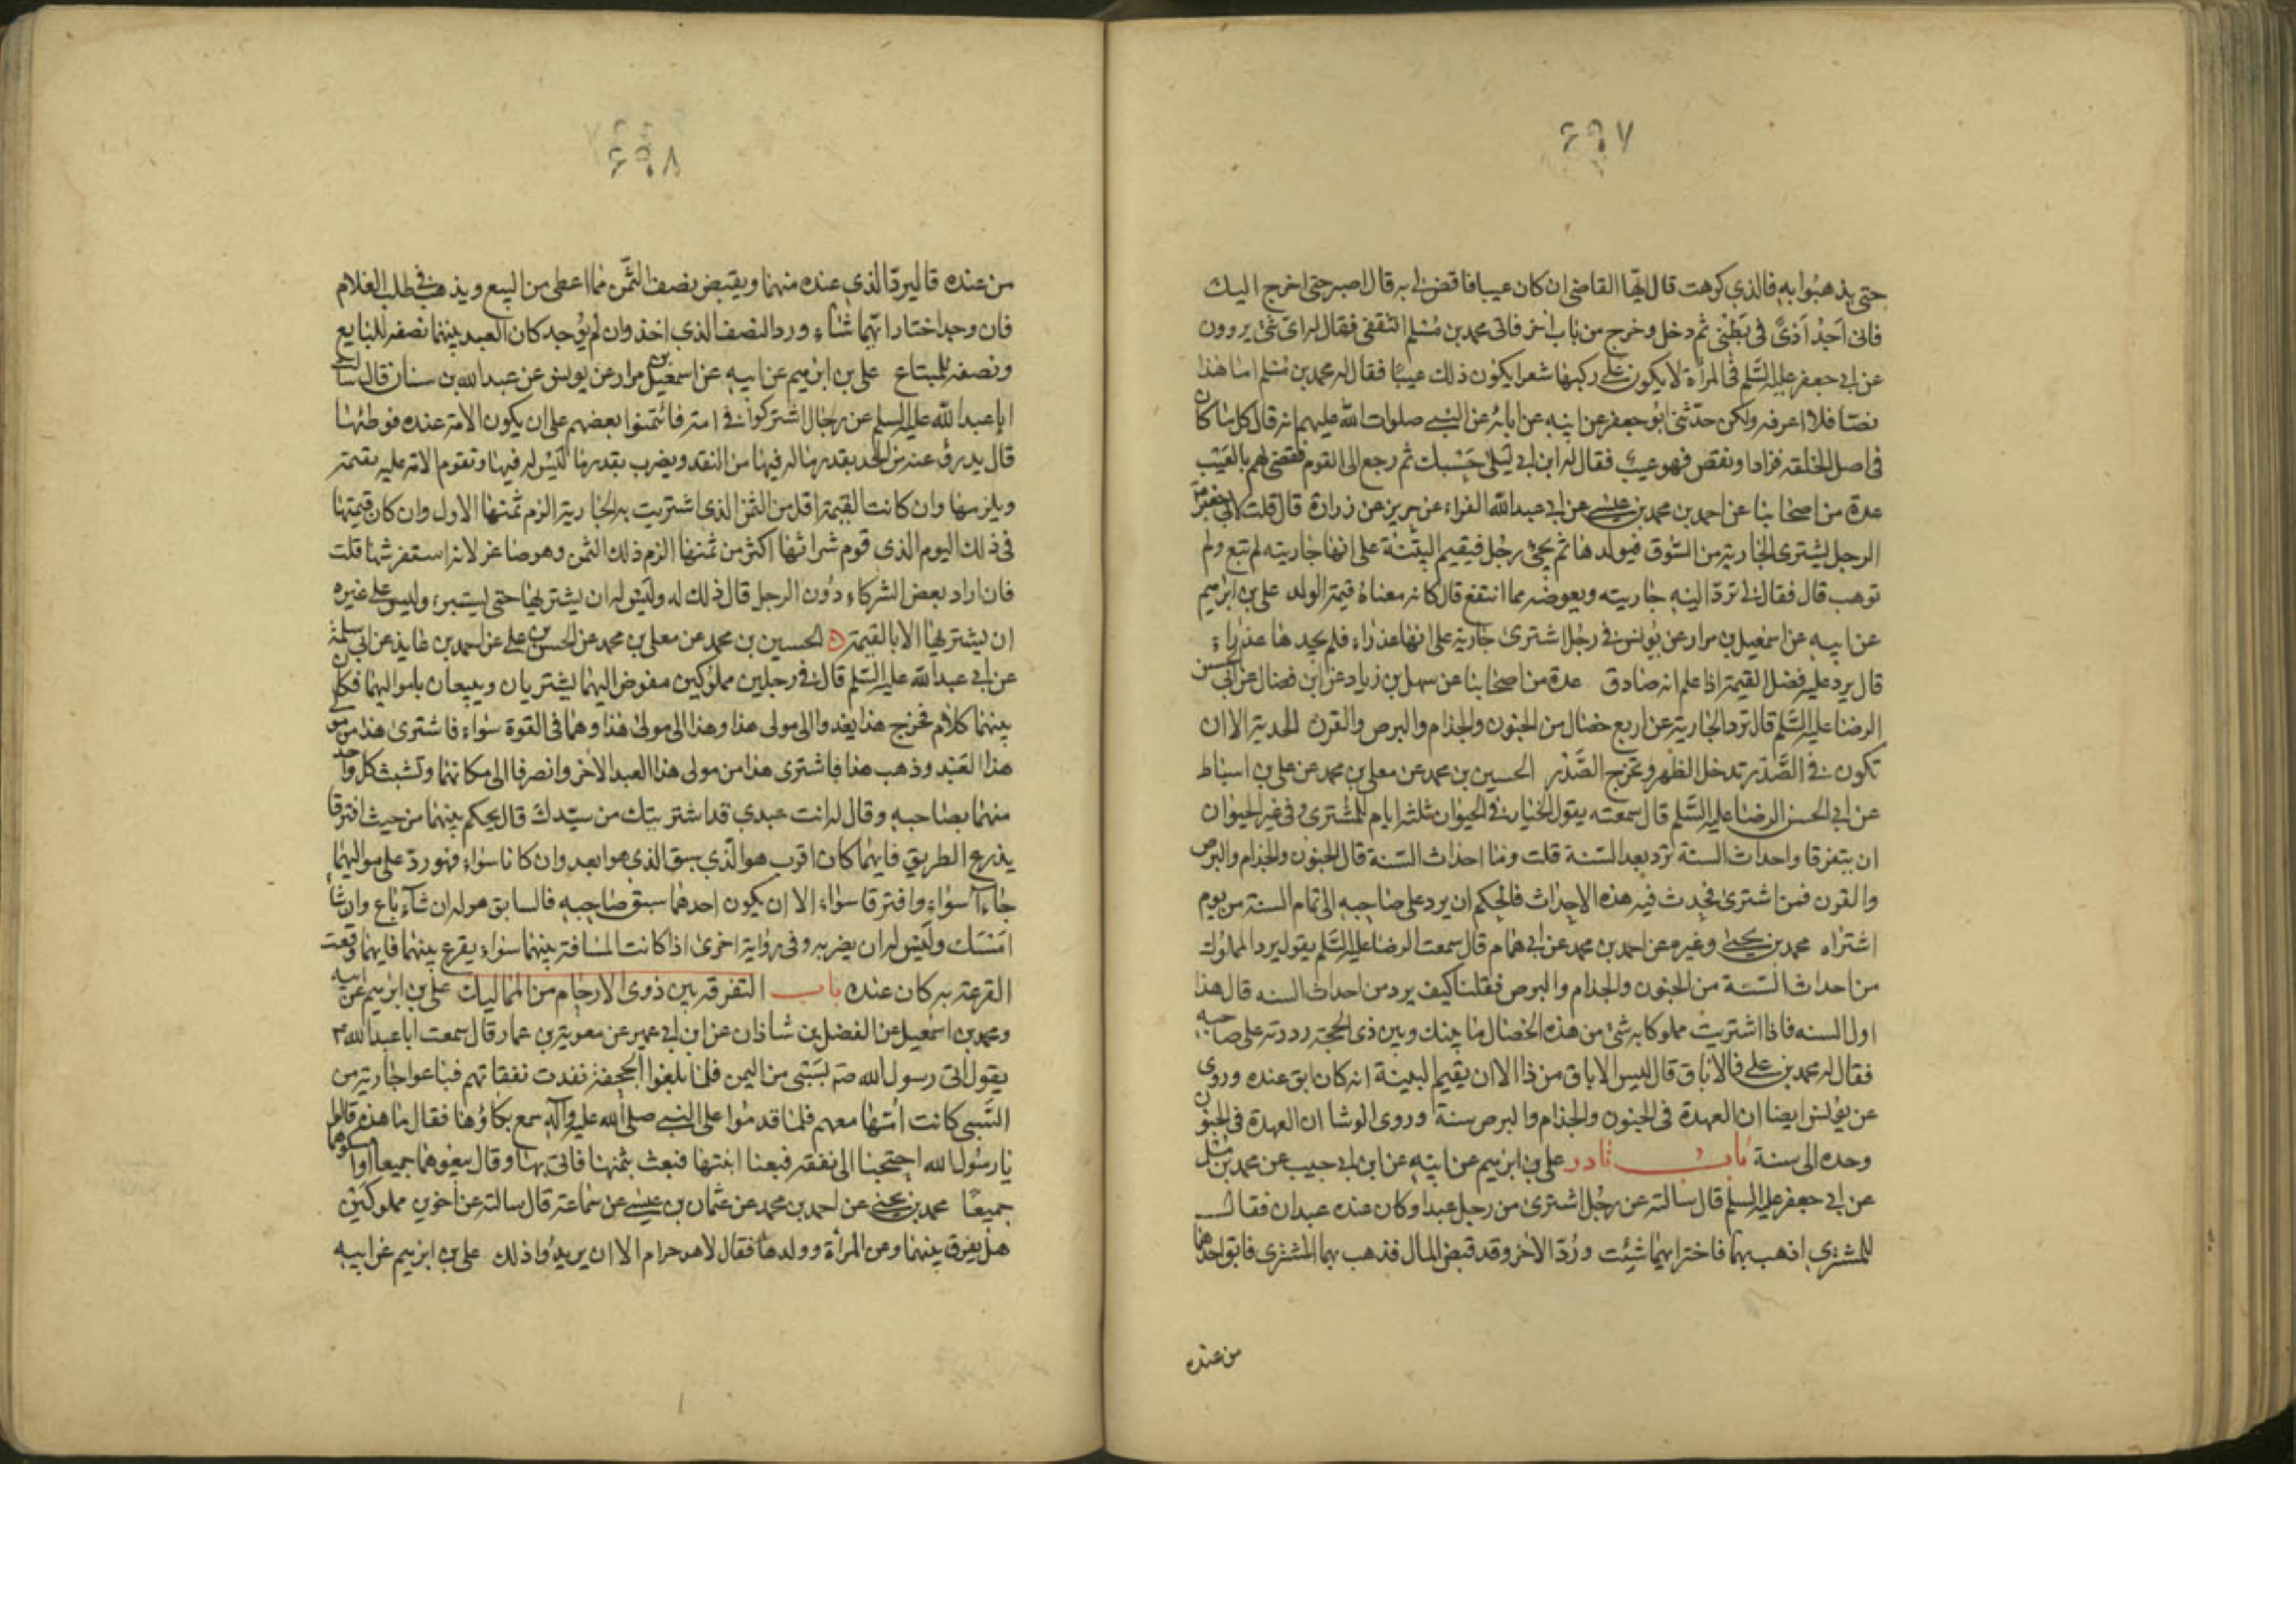 ٦٩٧
حتى يذهبوا به فالذي كرهت قال ايها القاضي ان كان عيبا فاقض لي به قال اصبر حتى اخرج اليك
فاني اجد اذى في بطني ثم دخل وخرج من باب اخر فاتى محمد بن مسلم الثقفي فقال له اي شئ يروون
عن ابي جعفر عليه السلم في المرأة لا يكون على ركبها شعر ايكون ذلك عيبا فقال له محمد بن مسلم اما هذا
نصا فلا اعرفه ولكن حدثني ابو جعفر عن ابيه عن ابائه عن النبي صلوات الله عليهم انه قال كل ما كان
في اصل الخلقه فزاد او نقص فهو عيب فقال له ابن ابي ليلى حسبك ثم رجع الى القوم فقضى لهم بالعيب
عدة من اصحابنا عن احمد بن محمد بن عيسى عن ابي عبد الله الفراء عن حريز عن زرارة قال قلت لابي جعفر
الرجل يشترى الجارية من السوق فيولدها ثم يجئ رجل فيقيم البينة على انها جاريته لم تبع ولم
توهب قال فقال لي ترد اليه جاريته ويعوضه مما انتفع قال كانه معناه قيمة الولد علي بن ابرهيم
عن ابيه عن اسمعيل بن مرار عن يونس في رجل اشترى جارية على انها عذراء فلم يجدها عذراء
قال يرد عليه فضل القيمة اذا علم انه صادق عدة من اصحابنا عن سهل بن زياد عن ابن فضال عن ابي الحسن
الرضا عليه السلم قال ترد الجارية عن اربع خصال من الجنون والجذام والبرص والقرن الحدبة الا ان
تكون في الصدر تدخل الظهر وتخرج الصدر الحسين بن محمد عن معلى بن محمد عن علي بن اسباط
عن ابي الحسن الرضا عليه السلم قال سمعته يقول الخيار في الحيوان ثلثه ايام للمشترى وفي غير الحيوان
ان يتفرقا واحداث السنة ترد بعد السنة قلت وما احداث السنة قال الجنون والجذام والبرص
والقرن فمن اشترى فحدث فيه هذه الاحداث فالحكم ان يرد على صاحبه الى تمام السنة من يوم
اشتراه محمد بن يحيى وغيره عن احمد بن محمد عن ابي همام قال سمعت الرضا عليه السلم يقول يرد المملوك
من احداث السنة من الجنون والجذام والبرص فقلنا كيف يرد من احداث السنه قال هذا
اول السنه فاذا اشتريت مملوكا به شئ من هذه الخصال ما بينك وبين ذي الحجة رددته على صاحبه
فقال له محمد بن علي فالاباق قال ليس الاباق من ذا الا ان يقيم البينة انه كان ابق عنده وروي
عن يونس ايضا ان العهدة في الجنون والجذام والبرص سنة وروى الوشا ان العهدة في الجنون
وحده الى سنة باب نادر علي بن ابرهيم عن ابيه عن ابن ابي حبيب عن محمد بن مسلم
عن ابي جعفر عليه السلم قال سالته عن رجل اشترى من رجل عبدا وكان عنده عبدان فقال
للمشتري اذهب بهما فاختر ايهما شئت ورد الاخر وقد قبض المال فذهب بهما المشترى فابق احدهما
من عنده
٦٩٨
من عنده قال يرد الذي عنده منهما ويقبض نصف الثمن مما اعطى من البيع ويذهب في طلب الغلام
فان وجد اختار ايهما شاء ورد النصف الذي اخذ وان لم يوجد كان العبد بينهما نصفه للبايع
ونصفه للمبتاع علي بن ابرهيم عن ابيه عن اسمعيل بن مرار عن يونس عن عبد الله بن سنان قال سالت
ابا عبد الله عليه السلم عن رجال اشتركوا في امة فائتمنوا بعضهم على ان يكون الامة عنده فوطئها
قال يدرؤ عنه من الحد بقدر ماله فيها من النقد ويضرب بقدر ما ليس له فيها وتقوم الامة عليه بقيمة
ويلزمها وان كانت القيمة اقل من الثمن الذي اشتريت به الجارية الزم ثمنها الاول وان كان قيمتها
في ذلك اليوم الذي قوم شرائها اكثر من ثمنها الزم ذلك الثمن وهو صاغر لانه استفرشها قلت
فان اراد بعض الشركاء دون الرجل قال ذلك له وليس له ان يشتريها حتى يستبرء وليس على غيره
ان يشتريها الا بالقيمة ه الحسين بن محمد عن معلى بن محمد عن الحسن بن علي عن احمد بن عايذ عن ابي سلمة
عن ابي عبد الله عليه السلم قال في رجلين مملوكين مفوض اليهما يشتريان ويبيعان باموالهما فكان
بينهما كلام فخرج هذا يغدو الى مولى هذا وهذا الى مولى هذا وهما في القوة سواء فاشترى هذا من مولى
هذا العبد وذهب هذا فاشترى هذا من مولى هذا العبد الاخر وانصرفا الى مكانهما وتشبث كل واحد
منهما بصاحبه وقال له انت عبدي قد اشتريتك من سيدك قال يحكم بينهما من حيث افترقا
يذرع الطريق فايهما كان اقرب هو الذي سبق الذي هو ابعد وان كانا سواء فهو رد على مواليهما
جاءا سواء وافترقا سواء الا ان يكون احدهما سبق صاحبه فالسابق هو له ان شاء باع وان شاء
امسك وليس له ان يضر به وفي رواية اخرى اذا كانت المسافة بينهما سواء يقرع بينهما فايهما وقعت
القرعة به كان عنده باب التفرقة بين ذوى الارحام من المماليك علي بن ابرهيم عن ابيه
ومحمد بن اسمعيل عن الفضل بن شاذان عن ابن ابي عمير عن معوية بن عمار قال سمعت ابا عبد الله ع
يقول اتى رسول الله صم بسبى من اليمن فلما بلغوا الجحفة نفدت نفقاتهم فباعوا جارية من
السبى كانت امها معهم فلما قدموا على النبي صلى الله عليه وآله سمع بكاؤها فقال ما هذه قالوا
يا رسول الله احتجنا الى نفقه فبعنا ابنتها فبعث بثمنها فاتى بها وقال بيعوهما جميعا او امسكوهما
جميعا محمد بن يحيى عن احمد بن محمد عن عثمان بن عيسى عن سماعة قال سالته عن اخوين مملوكين
هل يفرق بينهما وعن المرأة وولدها فقال لا هو حرام الا ان يريدوا ذلك علي بن ابرهيم عن ابيه